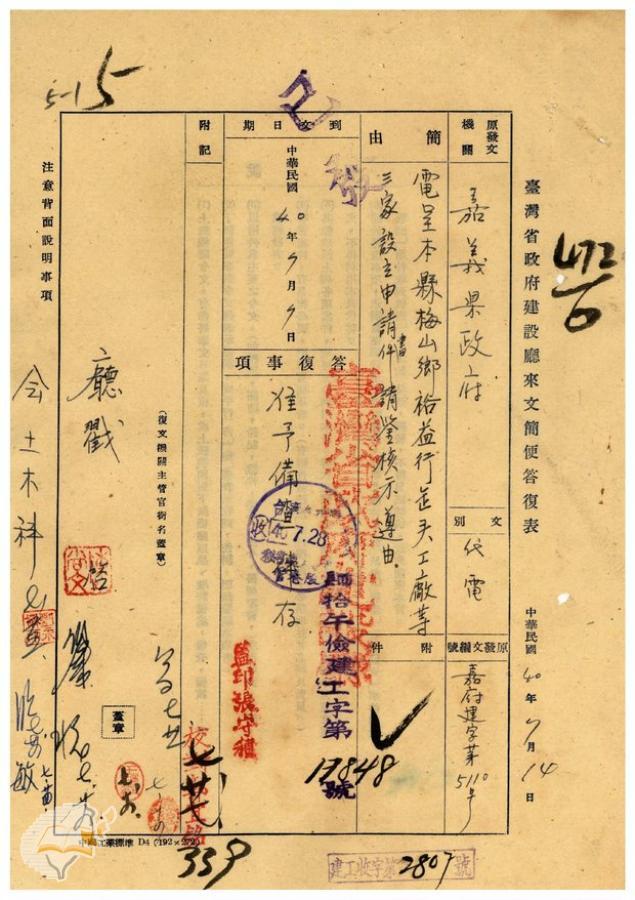 臺灣省政府建設廳來文簡便答復表
中華民國40年7月14日
原發文機關
嘉義縣政府
文別
代電
原發文編號
嘉府建字第5110號
簡由
電呈本縣梅山鄉裕益行筐夾工廠等
三家設立申請書件請鑒核示遵由
附件
到文日期
中華民國40年7月9日
答復事項
准予備查件存
收
40.7.28
肆拾午儉建土字第
17848號
監印張守種
附記
(復文機關主管官銜名蓋章)
廳戳
蓋章
会土木科
注意背面說明事項
中國工業標準 D4 (192×272)
339
建工收字第2807號
5-15
已發